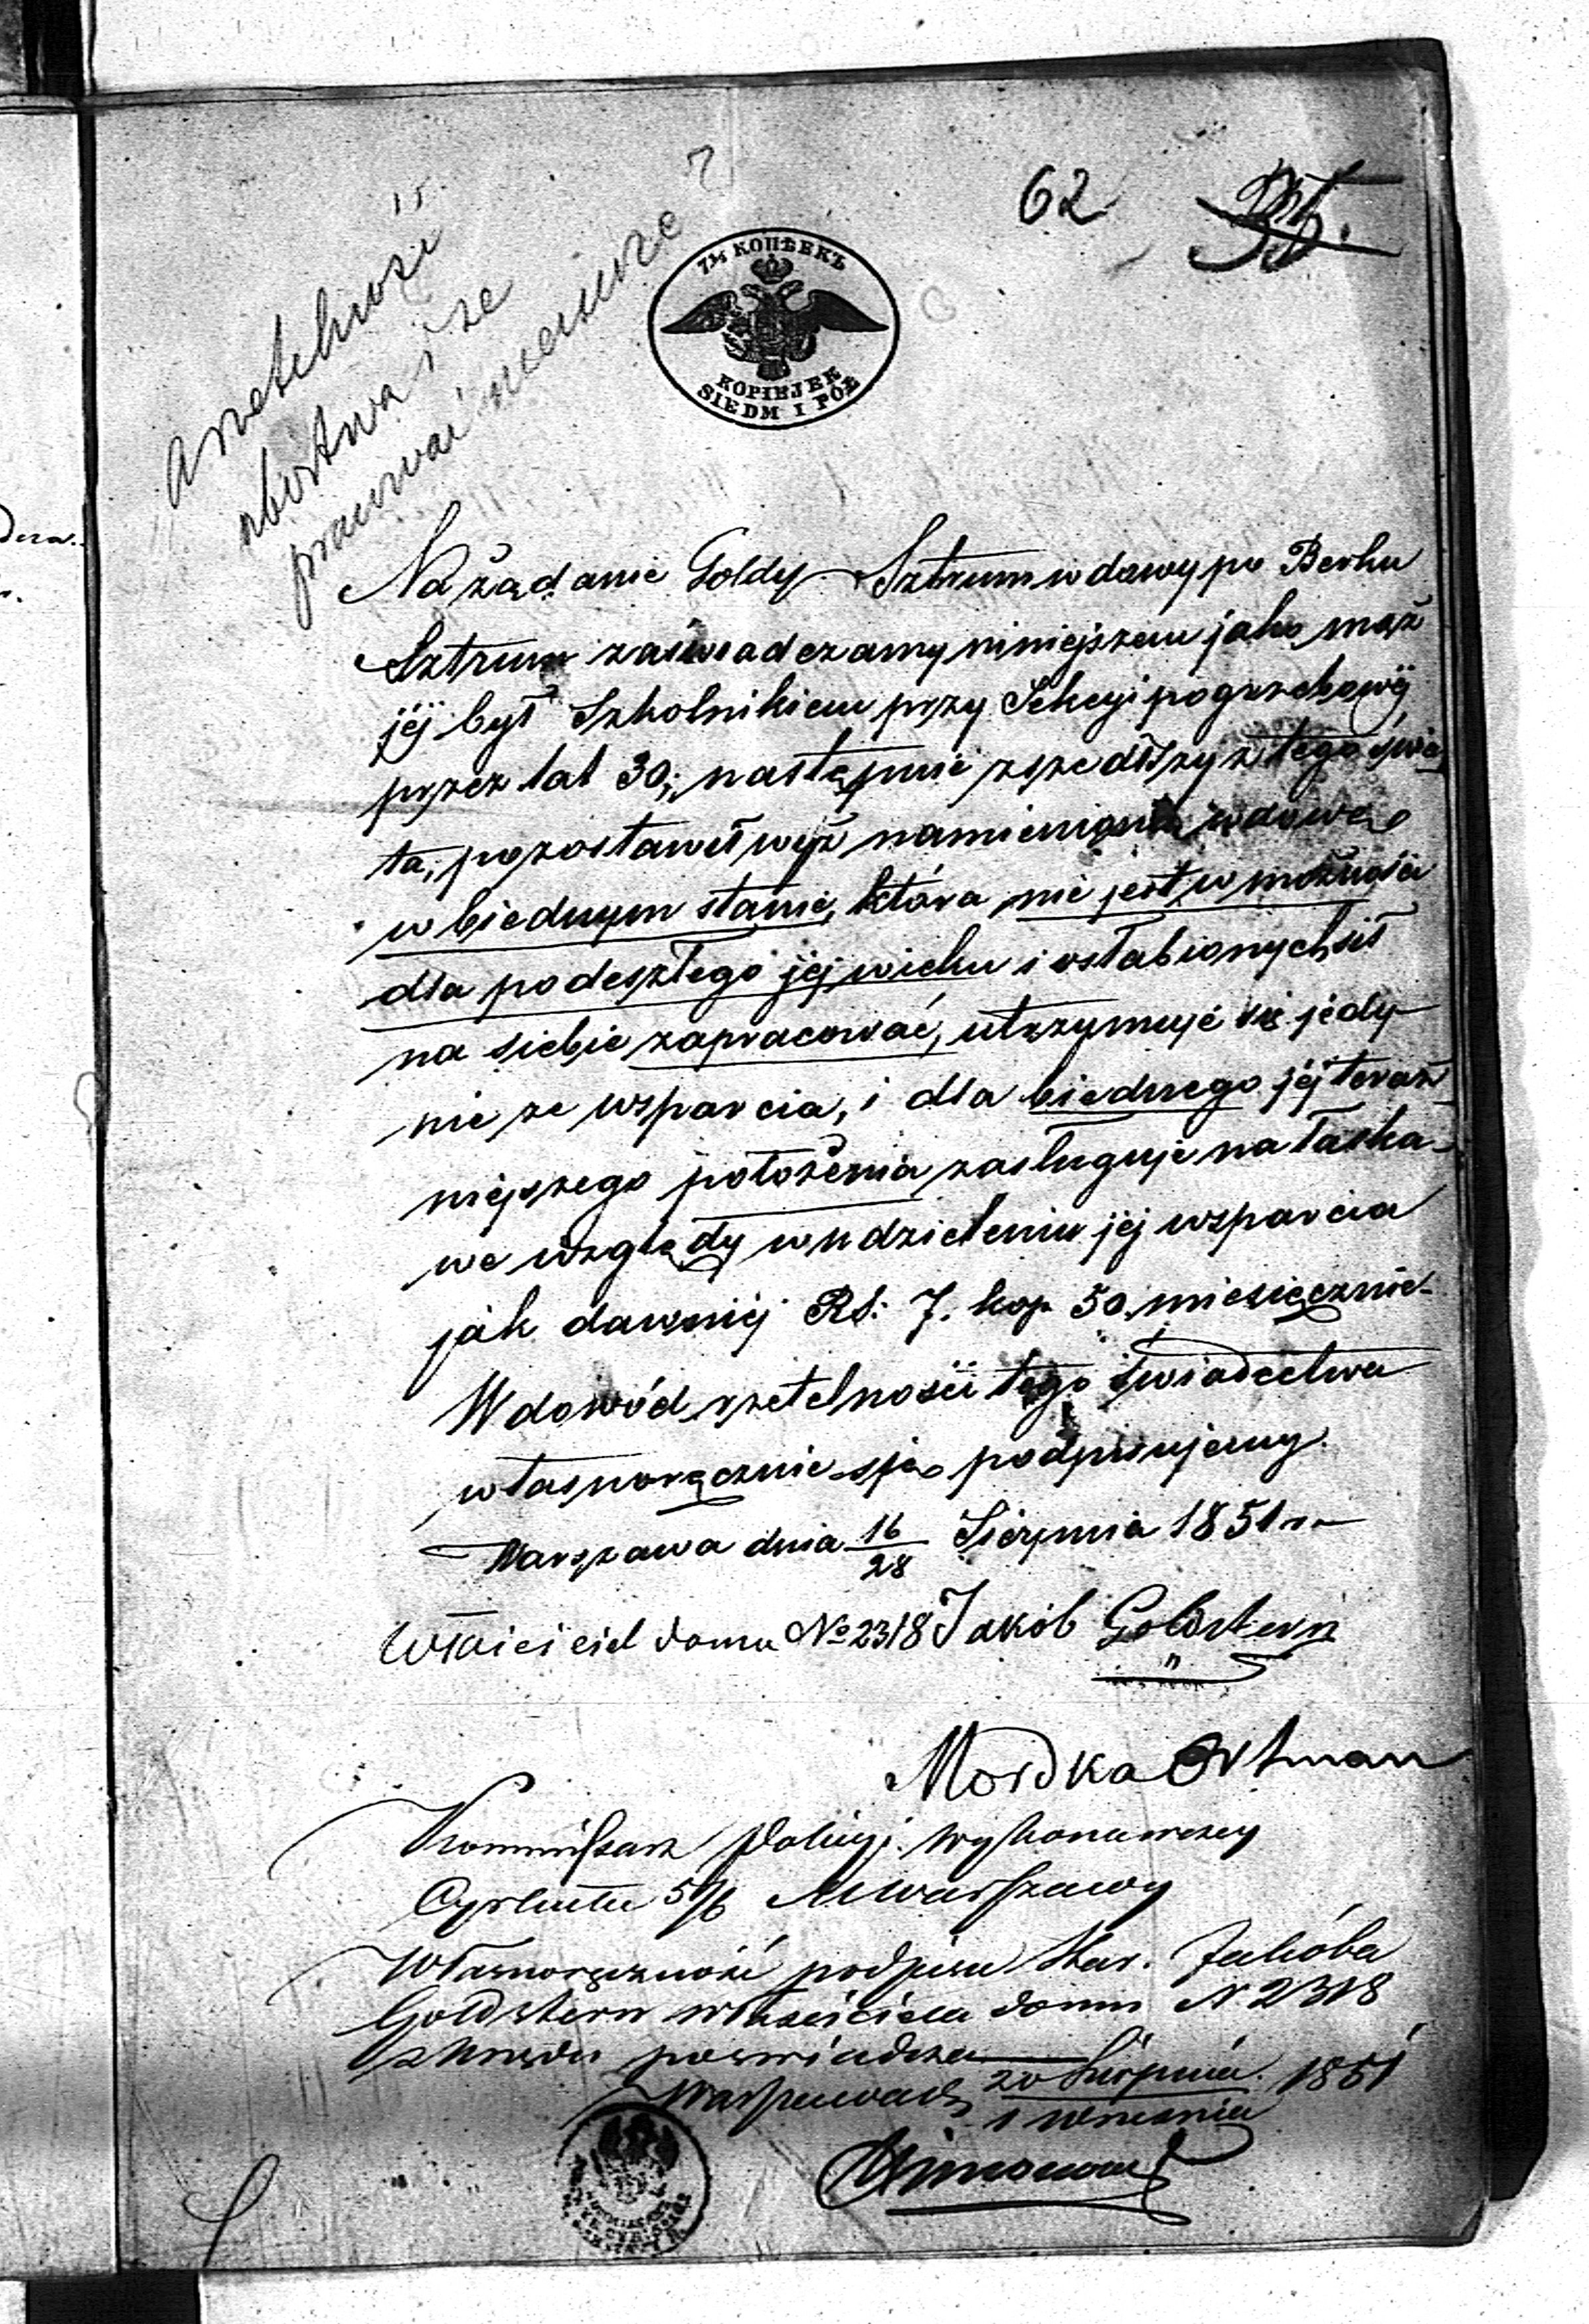 62
35.
7½ КОПѢЕКЪ
KOPIEJEK
SIEDM I PÓŁ
ubóstwa i że
pracować nie może ?
Na żądanie Goldy Sztrum wdowy po Berku
Sztrum zaświadczamy niniejszem jako mąż
jéj był Szkolnikiem przy Sekcyi pogrzebowéj
przez lat 30; następnie zszedłszy z tego świa
ta, pozostawił wyż namienioną wdowę
w biednym stanie, która nie jest w możności
dla podeszłego jéj wieku i osłabionych sił
na siebie zapracować, utrzymuje się jedy
nie ze wsparcia, i dla biednego jéj teraź
niejszego położenia zasługuje na łaska-
we względy w udzieleniu jéj wsparcia
jak dawniéj Rs: 7. kop. 50 miesięcznie.
W dowód rzetelności tego świadectwa
własnoręcznie się podpisujemy.
Warszawa dnia 16/28 Sierpnia 1851 r.
Właściciel domu No 2318 Jakób Goldstern
Mordka Ortman
Kommissarz Policyi Wykonawczej
Cyrkułu 5/6 M Warszawy
Własnoręczność podpisu Star. Jakóba
Goldstern właściciela domu N 2318
z urzędu poświadcza
Warszawa d. 20 Sierpnia / 1 Września 1851